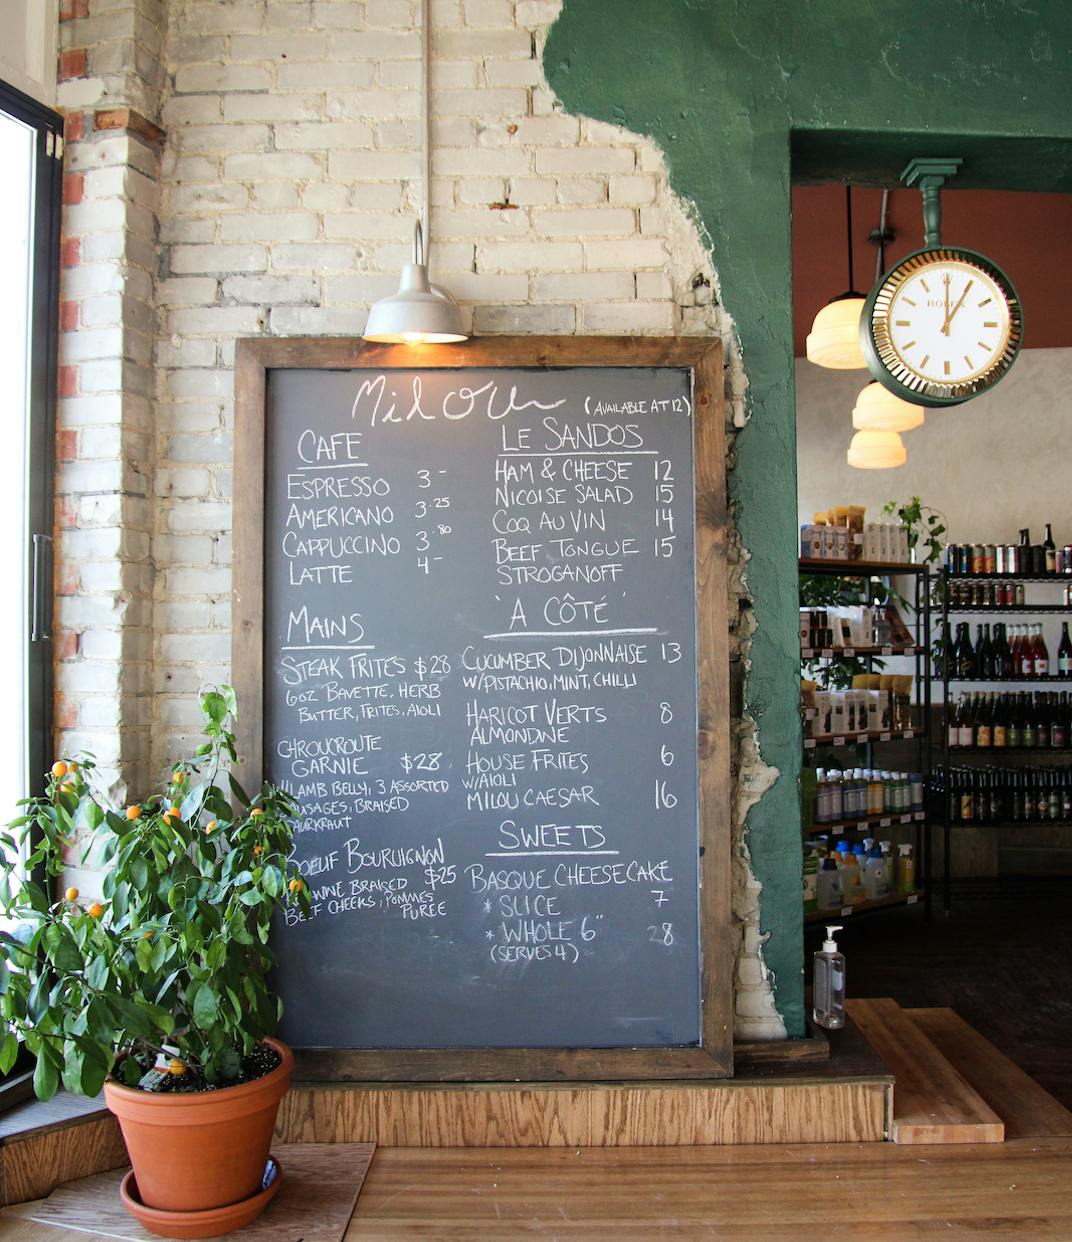 Milou
CAFE
ESPRESSO 3-
AMERICANO 3.25
CAPPUCCINO 3.80
LATTE 4-
MAINS
STEAK FRITES $28
6OZ BAVETTE, HERB
BUTTER, FRITES, AIOLI
CHROUCROUTE
GARNIE $28
W/LAMB BELLY, 3 ASSORTED
SAUSAGES, BRAISED
SAURKRAUT
BOEUF BOURUIGNON
$25
WINE BRAISED
BEEF CHEEKS, POMMES
PUREE
(AVAILABLE AT 12)
LE SANDOS
HAM & CHEESE 12
NICOISE SALAD 15
COQ AU VIN 14
BEEF TONGUE 15
STROGANOFF
'A CÔTÉ'
CUCUMBER DIJONNAISE 13
W/PISTACHIO, MINT, CHILLI
HARICOT VERTS 8
ALMONDINE
HOUSE FRITES 6
W/AIOLI
MILOU CAESAR 16
SWEETS
BASQUE CHEESECAKE
* SLICE 7
* WHOLE 6" 28
(SERVES 4)
ROLEX